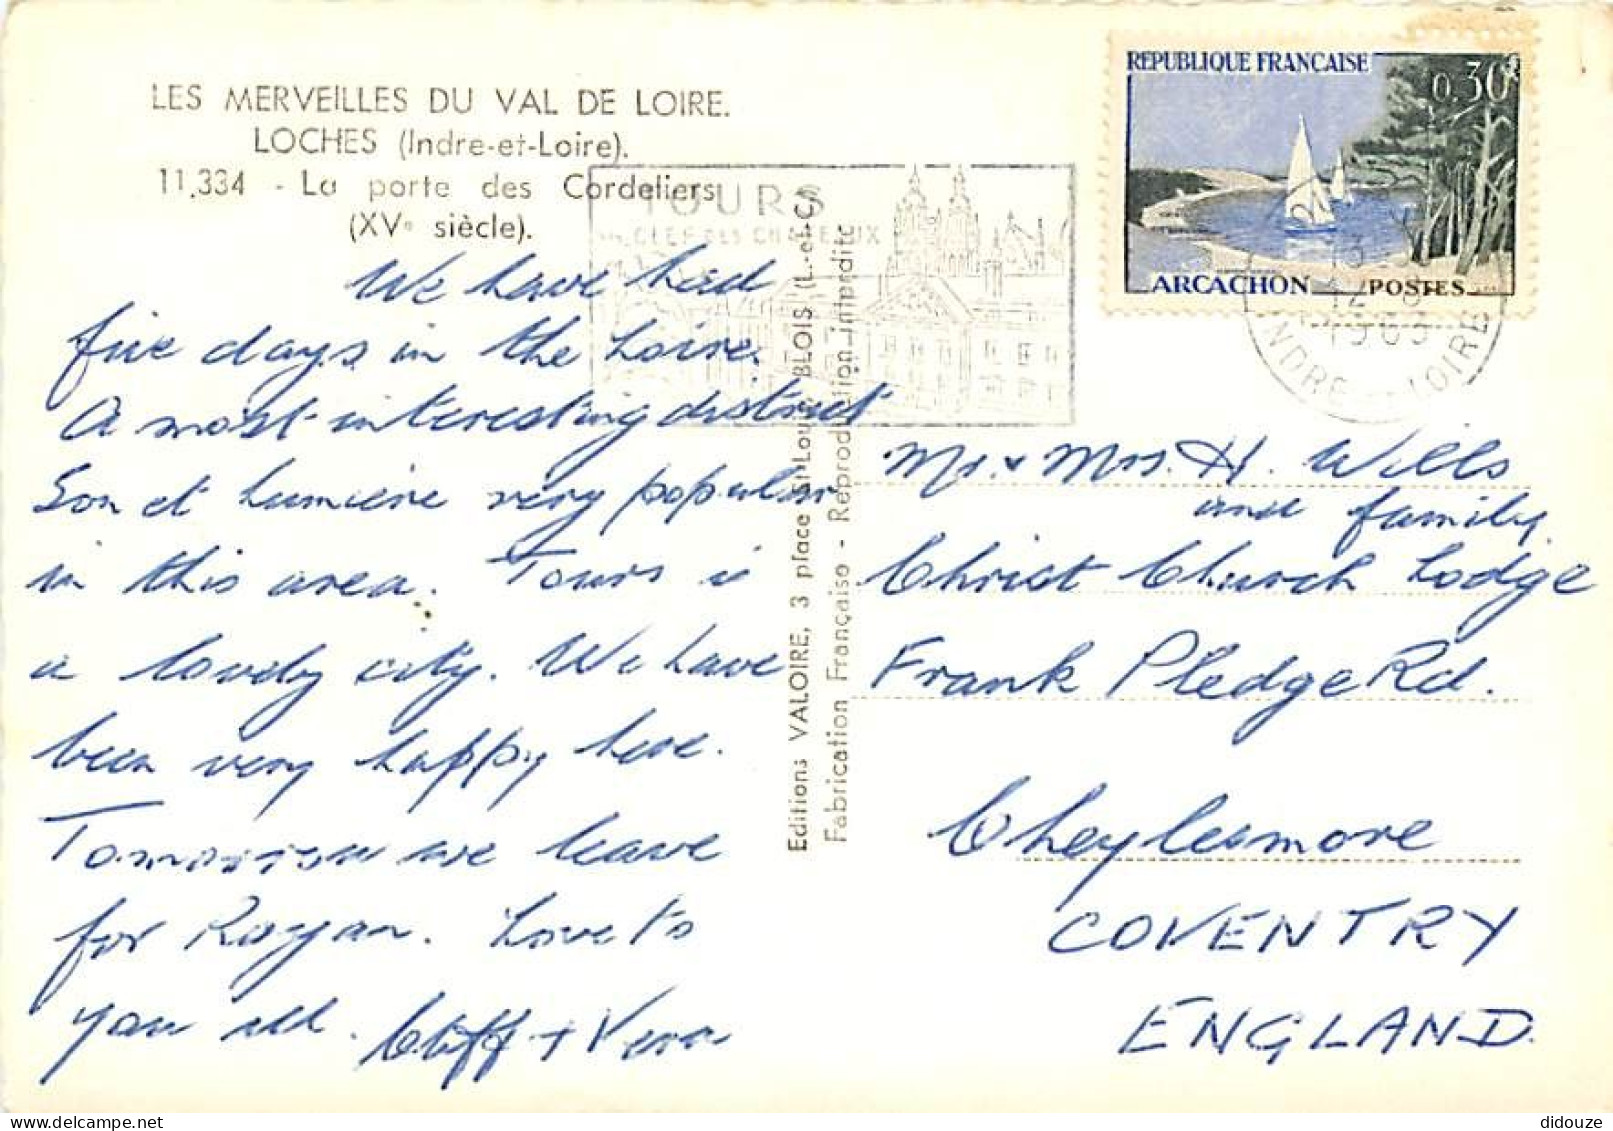 LES MERVEILLES DU VAL DE LOIRE.
LOCHES (Indre-et-Loire).
11.334 - La porte des Cordeliers
(XVe siècle).
We have had
five days in the Loire.
A most interesting district
Son et Lumiere very popular
in this area. Tours is
a lovely city. We have
been very happy here.
Tomorrow we leave
for Royan. Love to
you all. Cliff + Vera
Editions VALOIRE, 3 place St-Louis, BLOIS (L.-et-C.)
Fabrication Française - Reproduction interdite
TOURS
CLEF DES CHATEAUX
REPUBLIQUE FRANÇAISE
0,30
ARCACHON POSTES
TOURS
13
12-8
1963
INDRE-ET-LOIRE
Mr. & Mrs. H. Wills
and family.
Christ Church Lodge
Frank Pledge Rd.
Cheylesmore
COVENTRY
ENGLAND.
didouze